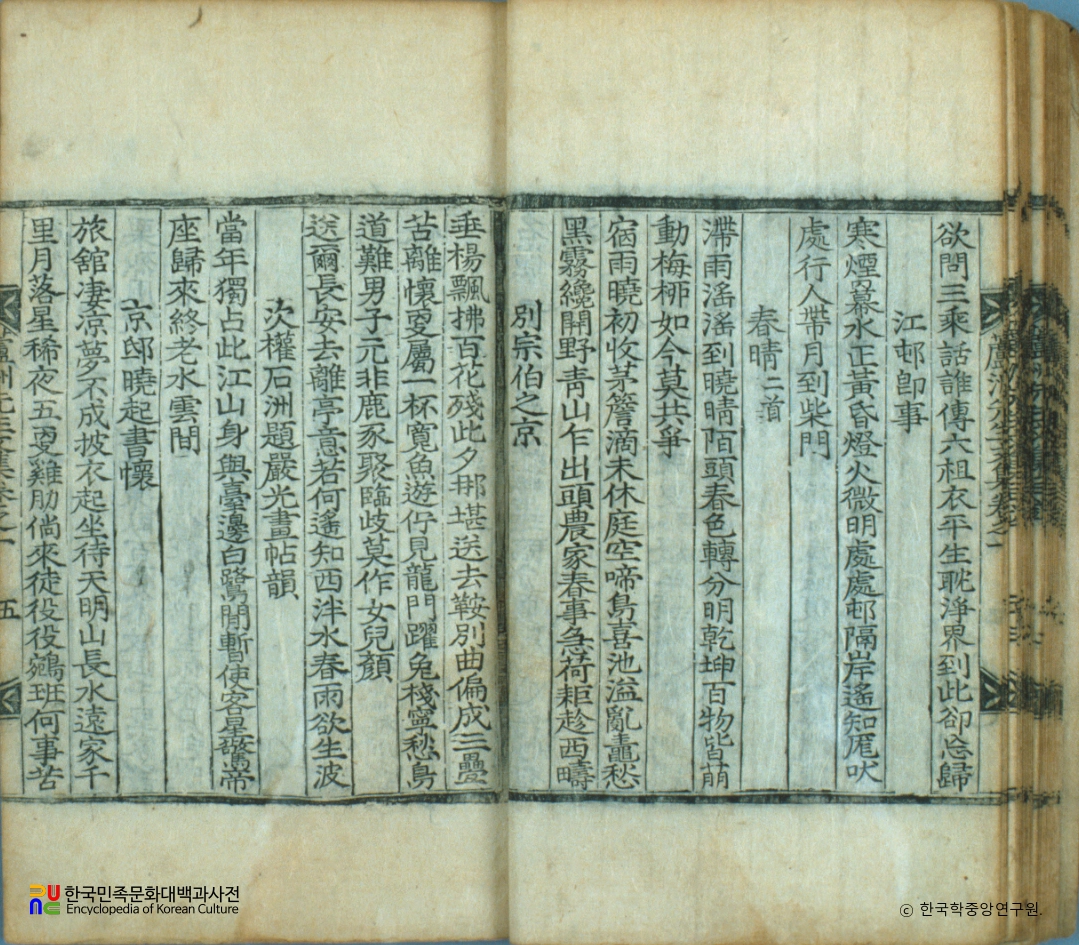 欲問三乘話誰傳六祖衣平生耽淨界到此卻忘歸
江邨卽事
寒煙羃水正黃昏燈火微明處處邨隔岸遙知厖吠
處行人帶月到柴門
春晴二首
滯雨滛滛到曉晴陌頭春色轉分明乾坤百物皆萌
動梅栁如今莫共爭
宿雨曉初收茅簷滴未休庭空啼鳥喜池溢亂鼃愁
黑霧纔開野靑山乍出頭農家春事急荷耟趁西疇
別宗伯之京
垂楊飄拂百花殘此夕那堪送去鞍別曲偏成三疊
苦離懷更屬一杯寬魚遊佇見龍門躍兔棧寧愁鳥
道難男子元非鹿豕聚臨歧莫作女兒顏
送爾長安去離亭意若何遙知西泮水春雨欲生波
次權石洲題嚴光畫帖韻
當年獨占此江山身與臺邊白鷺閒暫使客星驚帝
座歸來終老水雲間
京邸曉起書懷
旅舘凄凉夢不成披衣起坐待天明山長水遠家千
里月落星稀夜五更雞肋倘來徒役役鵷班何事苦
五
한국민족문화대백과사전
Encyclopedia of Korean Culture
ⓒ 한국학중앙연구원.